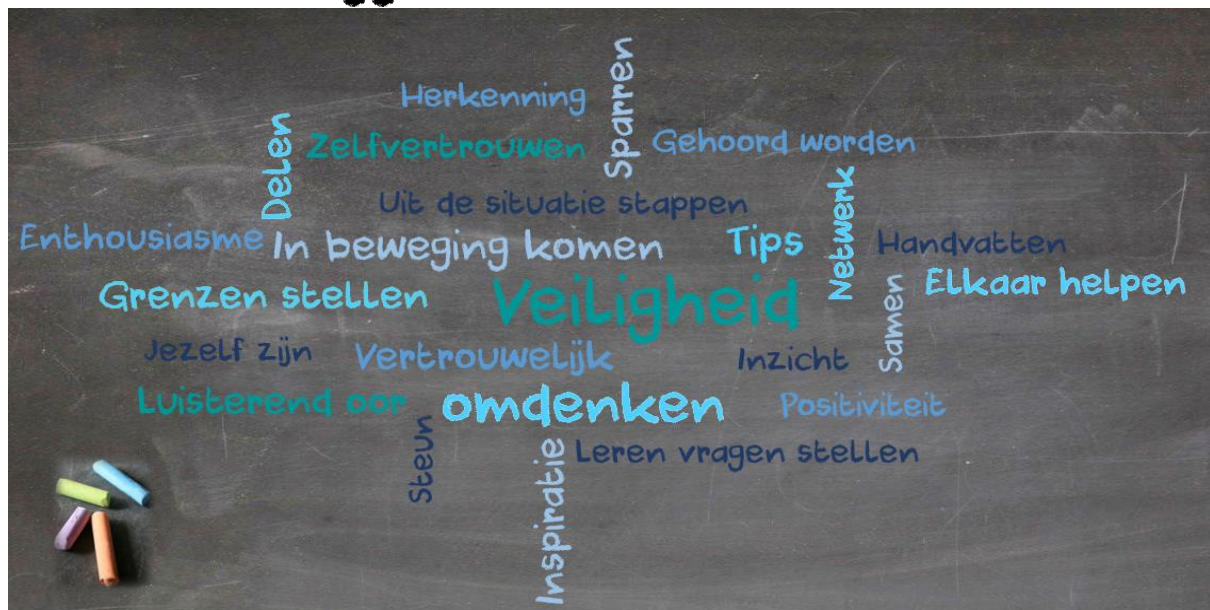 Herkenning
Sparren
Delen
Zelfvertrouwen
Gehoord worden
Uit de situatie stappen
Netwerk
Enthousiasme
In beweging komen
Tips
Handvatten
Grenzen stellen
Veiligheid
Samen
Elkaar helpen
Jezelf zijn
Vertrouwelijk
Inzicht
Luisterend oor
omdenken
Positiviteit
Steun
Inspiratie
Leren vragen stellen